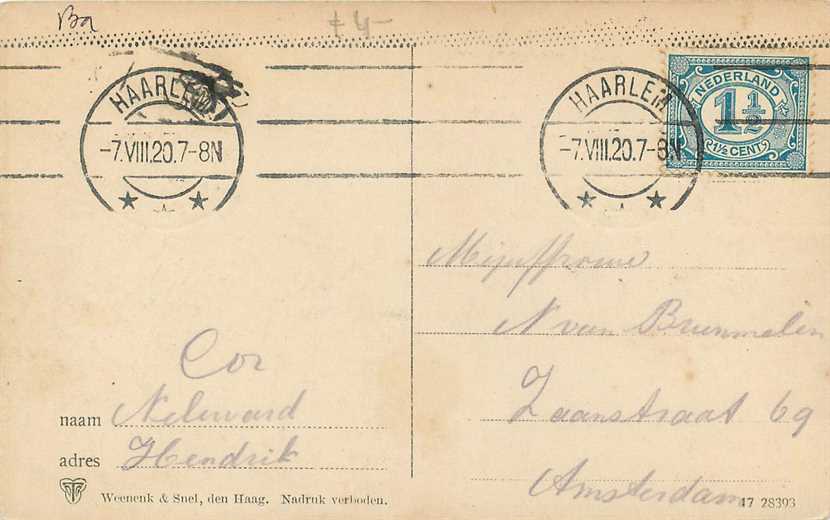 Ba
f 4-
HAARLEM
-7.VIII.20.7-8N
HAARLEM
-7.VIII.20.7-8N
NEDERLAND
1 1/2
1½ CENT
Mejuffrouw
N van Brummelen
Zaanstraat 69
Amsterdam
Cor
naam
adres Hendrik
Weenenk & Snel, den Haag. Nadruk verboden.
47 28393